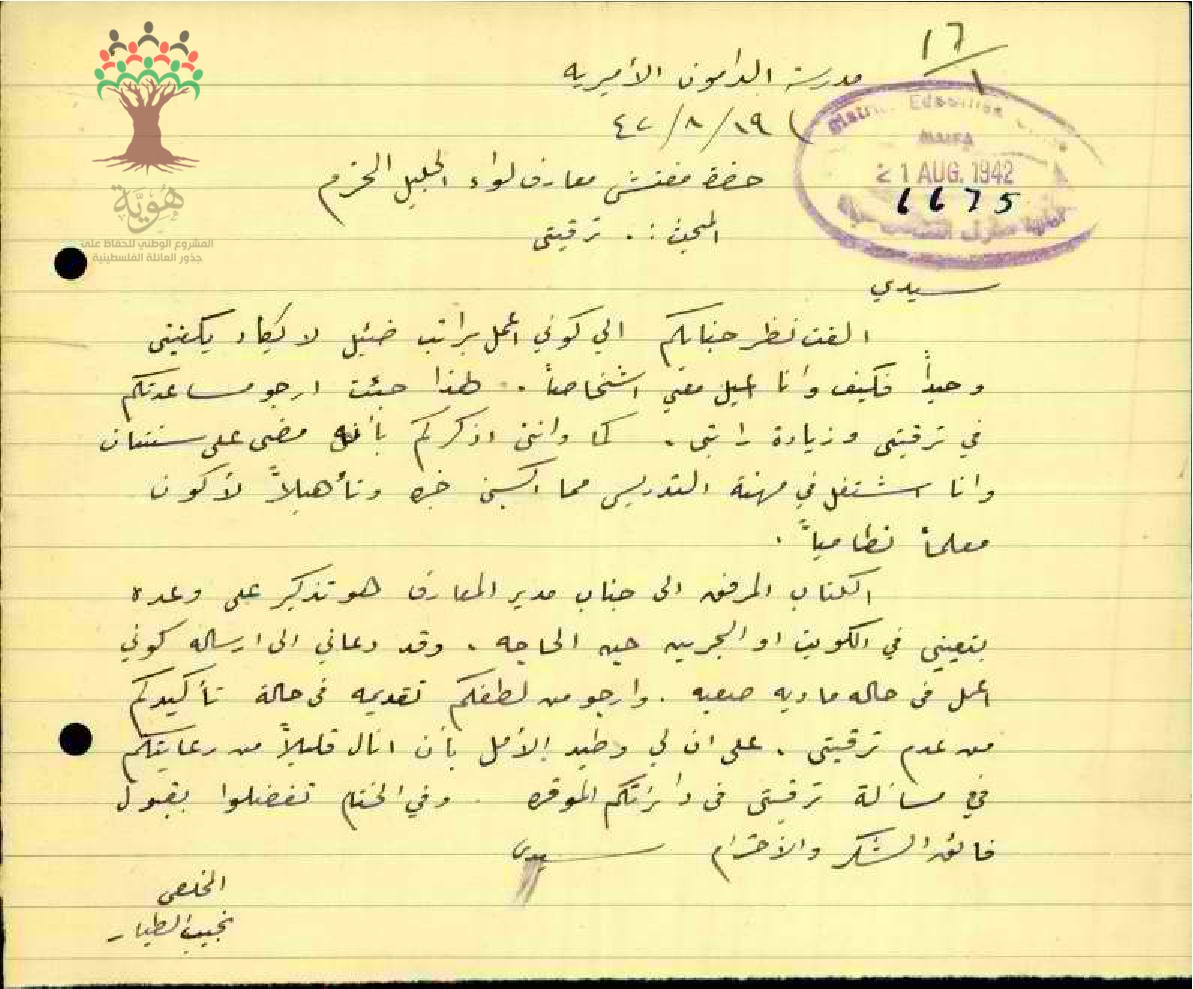 ١٦/١
مدرسة الدامون الأميريه
١٩/٨/٤٢
District Education Office
HAIFA
21 AUG. 1942
6675
حضرة مفتش معارف لواء الجليل المحترم
المبحث :. ترقيتي
سيدي
الفت نظر جنابكم الي كوني اعمل براتب ضئيل لا يكاد يكفيني
وحيداً فكيف وانا اعيل معي اشخاصاً. لهذا جئت ارجو مساعدتكم
في ترقيتي وزيادة راتبي. كما وانني اذكركم بأنه مضى على سنتان
وانا اشتغل في مهنة التدريس مما اكسبني خبره وتأهيلاً لأكون
معلماً نظامياً.
الكتاب المرفق الى جناب مدير المعارف هو تذكير على وعده
بتعييني في الكويت او البحرين حين الحاجه. وقد دعاني الى ارساله كوني
اعمل في حاله ماديه صعبه. وارجو من لطفكم تقديمه في حالة تأكيدكم
من عدم ترقيتي. على ان لي وطيد الأمل بأن انال قليلاً من رعايتكم
في مسألة ترقيتي في دائرتكم الموقره. وفي الختام تفضلوا بقبول
فائق الشكر والأحترام سيدي
المخلص
نجيب الطيار
هُوِيَّة
المشروع الوطني للحفاظ على
جذور العائلة الفلسطينية